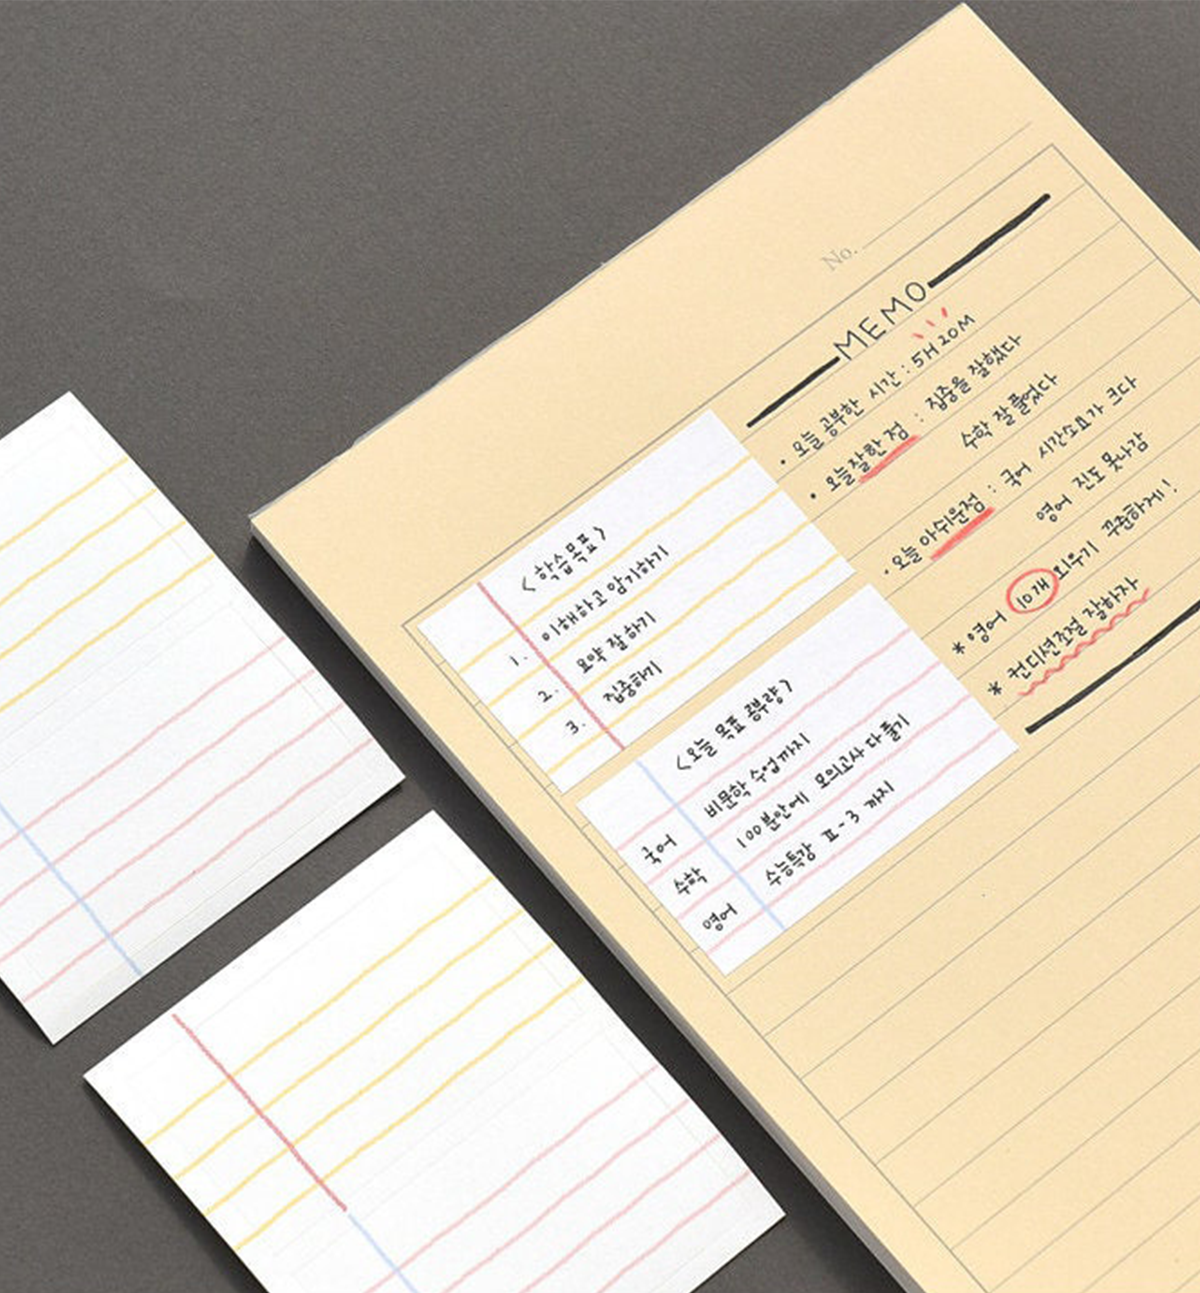 No.
MEMO
• 오늘 공부한 시간 : 5H 20M
• 오늘 잘한 점 : 집중을 잘했다
수학 잘 풀었다
• 오늘 아쉬운점 : 국어 시간소요가 크다
영어 진도 못나감
* 영어 10개 외우기 꾸준하게!
* 컨디션조절 잘하자
<학습목표>
1. 이해하고 암기하기
2. 요약 잘하기
3. 집중하기
<오늘 목표 공부량>
국어 비문학 수업까지
수학 100분안에 모의고사 다 풀기
영어 수능특강 II-3 까지